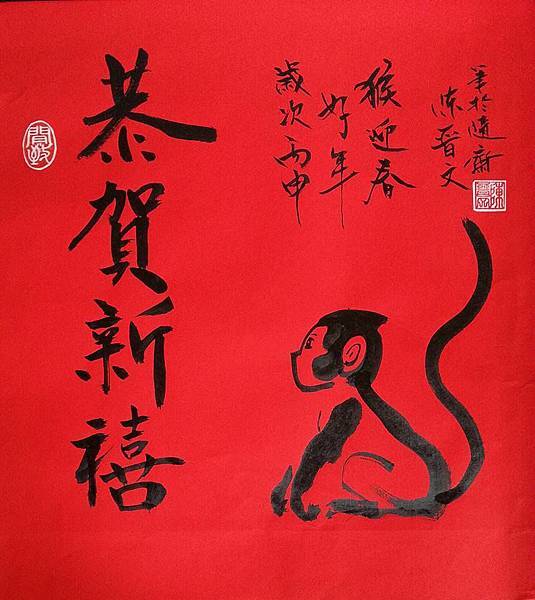 恭賀新禧
歲次丙申
好年
猴迎春
陳晉文
筆於隨齋